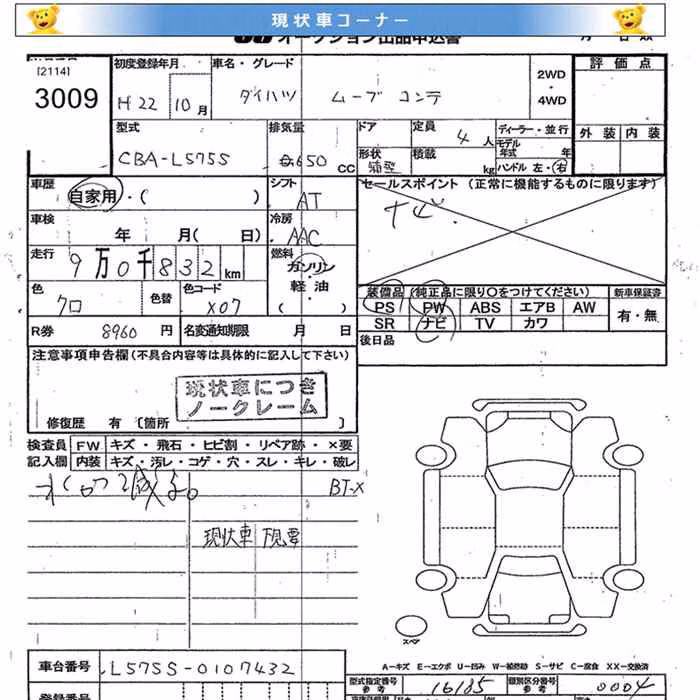 現状車コーナー
オークション出品申込書
[2114]
3009
初度登録年月
H22 10月
車名・グレード
ダイハツ ムーブ コンテ
2WD
・
4WD
評価点
外装 内装
型式
CBA-L575S
排気量
650 CC
ドア
形状
定員
4人
積載
kg
ディーラー・並行
モデル
年式 年
ハンドル 左・右
車歴
自家用・( )
シフト
AT
セールスポイント (正常に機能するものに限ります)
ナビ
車検
年 月( 日)
冷房
AAC
走行
9万0千832km
燃料
ガソリン
・
軽油
( )
色
クロ
色替
色コード
X07
装備品 (純正品に限り○をつけてください)
新車保証書
PS PW ABS エアB AW
SR ナビ TV カワ
有・無
R券 8960円
名変通知期限 月 日
後日品
注意事項申告欄(不具合内容等は具体的に記入して下さい)
現状車につき
ノークレーム
修復歴 有 [箇所 ]
検査員
記入欄
FW キズ・飛石・ヒビ割・リペア跡・×要
内装 キズ・汚レ・コゲ・穴・スレ・キレ・破レ
BT-X
現状車 下見要
スペア
A−キズ E−エクボ U−凹み W−補修跡 S−サビ C−腐食 XX−交換済
車台番号
L575S-0107432
型式指定番号
参考
16185
類別区分番号
参考
0004
登録番号